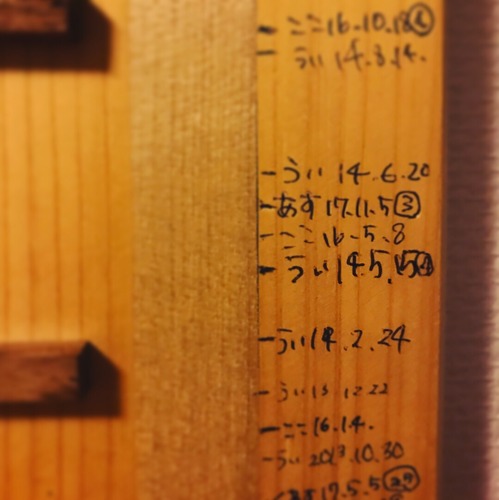 ここ16.10.18④
うい 14.8.14.
うい 14.6.20
あす17.11.5③
ここ16.5.8
うい14.5.15④
うい14.2.24
うい13 12.22
ここ16.1.4.
うい2013.10.30
あす17.5.5